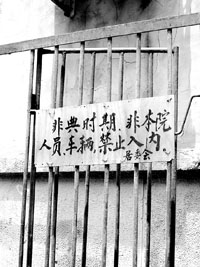 非典时期,非本院
人员、车辆,禁止入内。
居委会